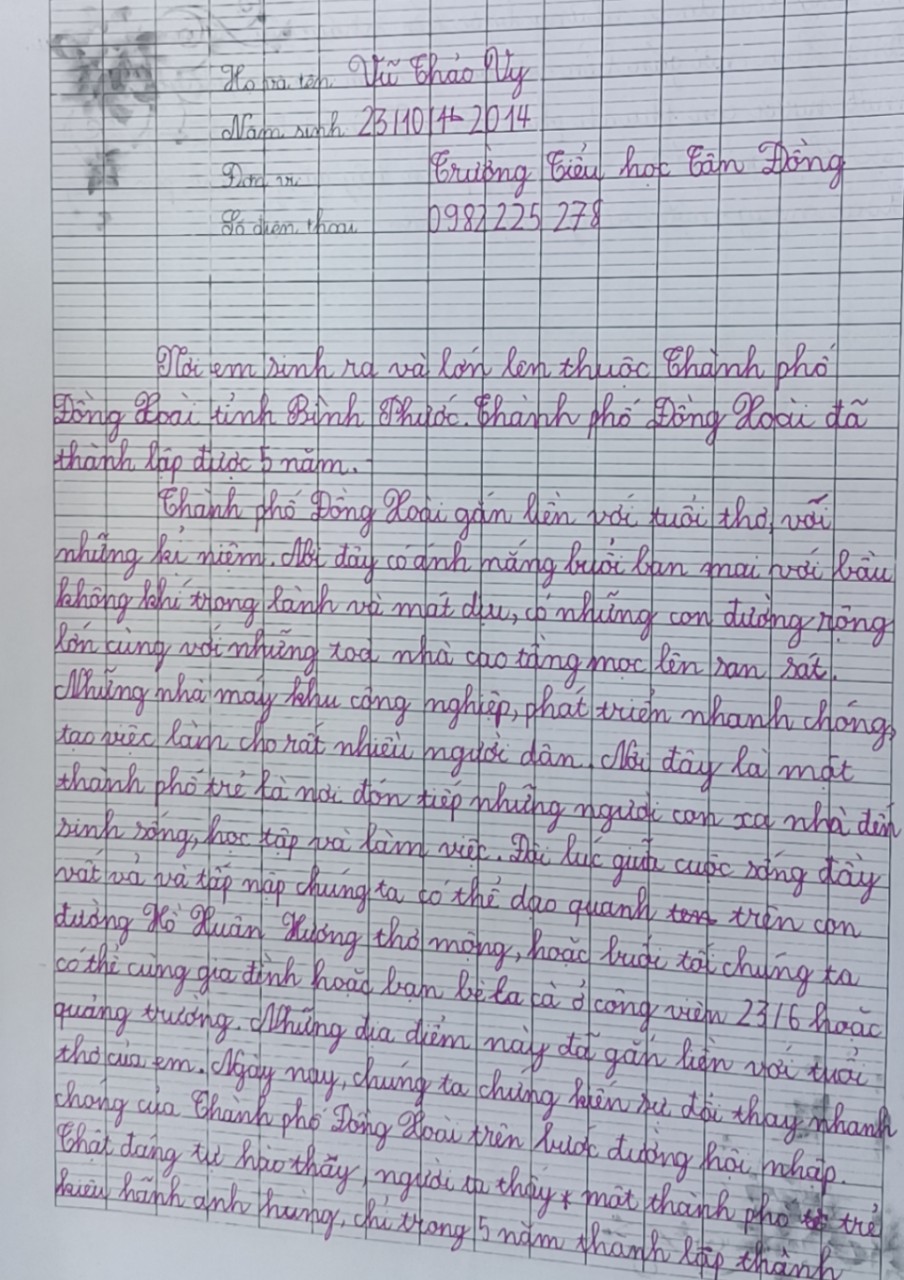 Họ và tên Vũ Thảo Vy
Năm sinh 23/10/ 2014
Đơn vị Trường Tiểu học Tân Đồng
Số điện thoại 0982 225 278
Nơi em sinh ra và lớn lên thuộc Thành phố
Đồng Xoài tỉnh Bình Phước. Thành phố Đồng Xoài đã
thành lập được 5 năm.
Thành phố Đồng Xoài gắn liền với tuổi thơ, với
những kỉ niệm. Nơi đây có ánh nắng buổi ban mai với bầu
không khí trong lành và mát dịu, có những con đường rộng
lớn cùng với những toà nhà cao tầng mọc lên san sát.
Những nhà máy khu công nghiệp, phát triển nhanh chóng,
tạo việc làm cho rất nhiều người dân. Nơi đây là một
thành phố trẻ là nơi đón tiếp những người con xa nhà đến
sinh sống, học tập và làm việc. Đôi lúc giữa cuộc sống đầy
vất vả và tấp nập chúng ta có thể dạo quanh trên con
đường Hồ Xuân Hương thơ mộng, hoặc buổi tối chúng ta
có thể cùng gia đình hoặc bạn bè la cà ở công viên 23/6 hoặc
quảng trường. Những địa điểm này đã gắn liền với tuổi
thơ của em. Ngày nay, chúng ta chứng kiến sự đổi thay nhanh
chóng của Thành phố Đồng Xoài trên bước đường hội nhập.
Thật đáng tự hào thấy, người ta thấy một thành phố trẻ
kiêu hãnh anh hùng, chỉ trong 5 năm thành lập thành